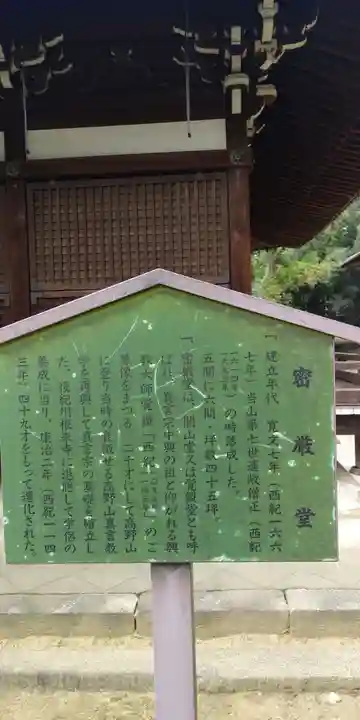 密厳堂
一、建立年代 寛文七年(西紀一六六
七年)当山第七世運敞僧正(西紀
の時落成した。
五間に六間・坪数四十五坪。
一、密厳堂は、開山堂又は覚鑁堂とも呼
ばれ、真言宗中興の祖と仰がれる興
教大師覚鑁(西紀 のご
尊像をまつる。二十才にして高野山
に登り当時の衰微せる高野山真言教
学を再興して真言宗の基礎を確立し
た。後紀州根来寺に退居して学侶の
養成に当り、康治二年(西紀一一四
三年)四十九才をもって遷化された。